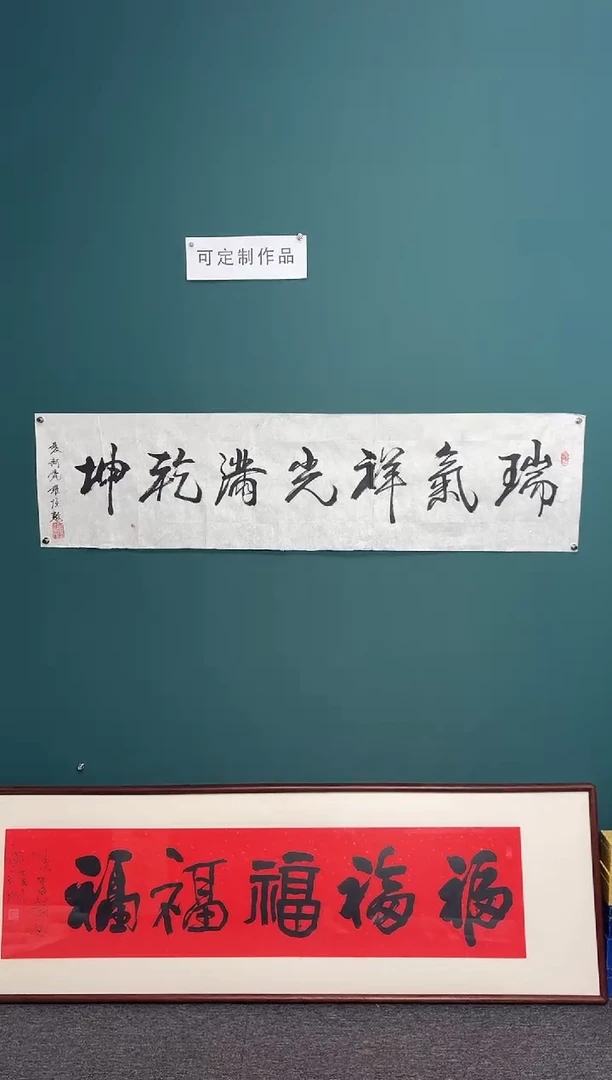 可定制作品
瑞氣祥光满乾坤
福福福福福